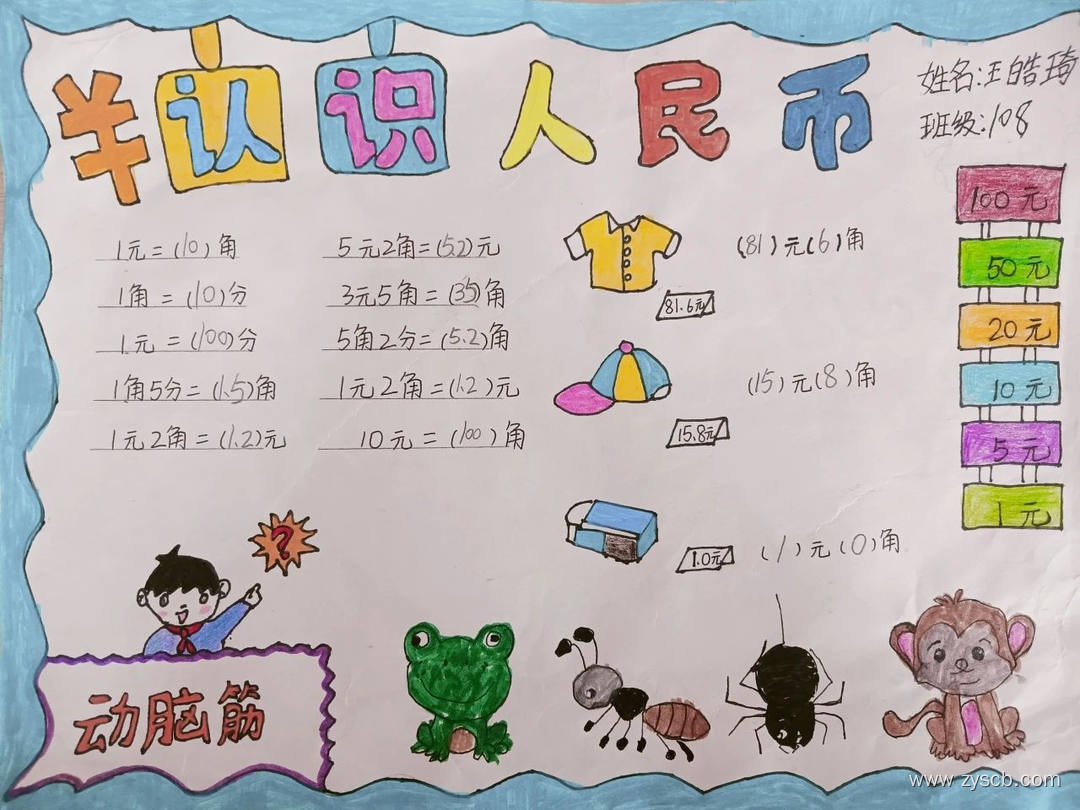 羊 认识人民币
姓名:王皓琦
班级:108
1元=(10)角
1角=(10)分
1元=(100)分
1角5分=(1.5)角
1元2角=(1.2)元
5元2角=(5.2)元
3元5角=(35)角
5角2分=(5.2)角
1元2角=(1.2)元
10元=(100)角
81.6元
(81)元(6)角
15.8元
(15)元(8)角
1.0元
(1)元(0)角
100元
50元
20元
10元
5元
1元
?
动脑筋
www.zyscb.com